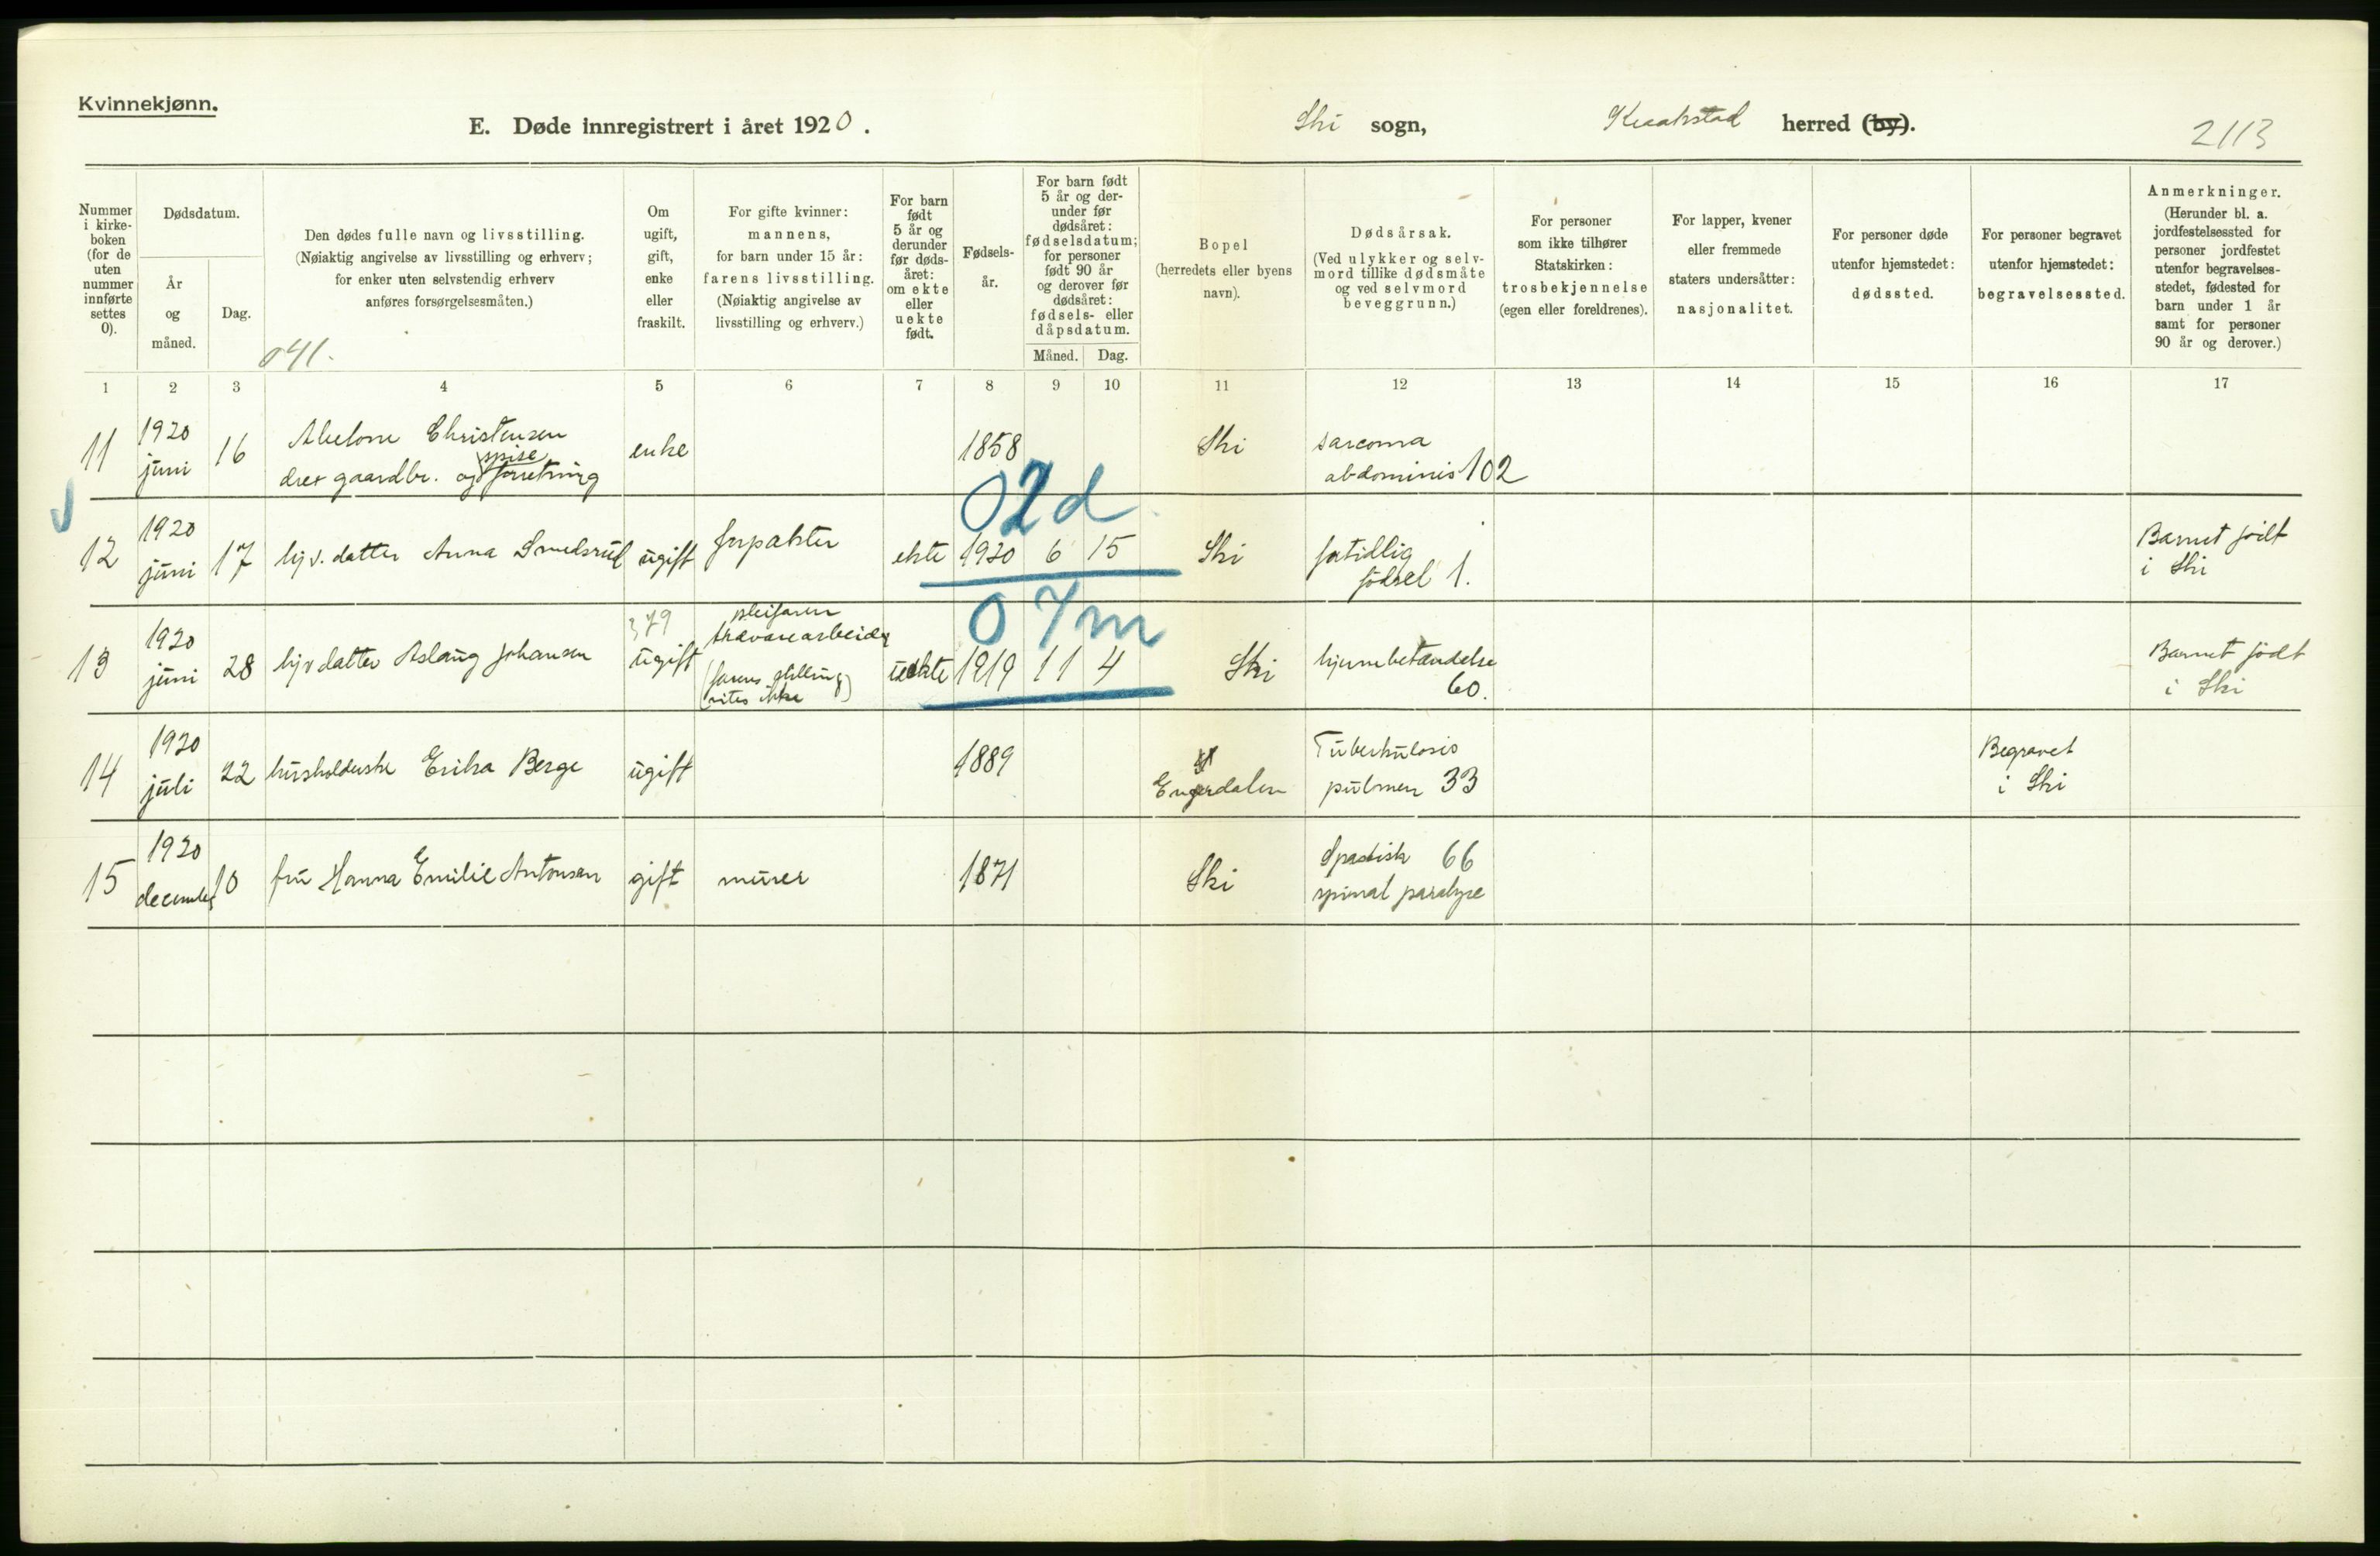 Kvinnekjønn.
E. Døde innregistrert i året 1920.
Ski sogn, Kraakstad herred (by).
2113
Nummer i kirke-boken (for de uten nummer innførte settes 0).
Dødsdatum.
År og måned.
Dag.
Den dødes fulle navn og livsstilling.
(Nøiaktig angivelse av livsstilling og erhverv;
for enker uten selvstendig erhverv
anføres forsørgelsesmåten.)
041.
Om ugift, gift, enke eller fraskilt.
For gifte kvinner:
mannens,
for barn under 15 år:
farens livsstilling.
(Nøiaktig angivelse av
livsstilling og erhverv.)
For barn født 5 år og derunder før døds-året: om ekte eller uekte født.
Fødsels-år.
For barn født 5 år og der-under før dødsåret: fødselsdatum; for personer født 90 år og derover før dødsåret: fødsels- eller dåpsdatum.
Måned. Dag.
Bopel
(herredets eller byens
navn).
Dødsårsak.
(Ved ulykker og selv-
mord tillike dødsmåte
og ved selvmord
beveggrunn.)
For personer
som ikke tilhører
Statskirken:
trosbekjennelse
(egen eller foreldrenes).
For lapper, kvener
eller fremmede
staters undersåtter:
nasjonalitet.
For personer døde
utenfor hjemstedet:
dødssted.
For personer begravet
utenfor hjemstedet:
begravelsessted.
Anmerkninger.
(Herunder bl. a.
jordfestelsessted for
personer jordfestet
utenfor begravelses-
stedet, fødested for
barn under 1 år
samt for personer
90 år og derover.)
1 2 3 4 5 6 7 8 9 10 11 12 13 14 15 16 17
11 1920 juni 16 Abelone Christensen
drev gaardbr. og spise forretning
enke 1858 Ski sarcoma
abdominis 102
02d
12 1920 juni 17 hj v. datter Anna Smedsrud ugift forpakter ekte 1920 6 15 Ski fortidlig
födsel 1.
Barnet födt
i Ski
07m
13 1920 juni 28 hjv datter Aslaug Johansen 379 ugift pleifaren
trævarearbeider
(farens stilling
vites ikke)
uekte 1919 11 4 Ski hjernebetændelse
60.
Barnet födt
i Ski
14 1920 juli 22 husholderske Erika Berge ugift 1889 Engerdalen Tuberkulosis
pulmon 33
Begravet
i Ski
15 1920 december 10 fru Hanna Emilie Antonsen gift murer 1871 Ski Spastisk 66
spinal paralyse